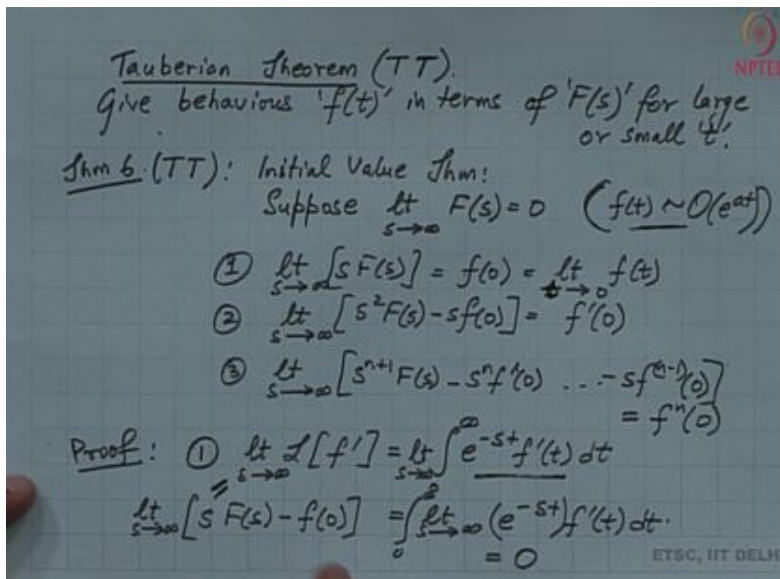 NPTEL
Tauberian Theorem (TT).
Give behaviour 'f(t)' in terms of 'F(s)' for large
or small 't'.
Thm 6. (TT): Initial Value Thm:
Suppose lt s→∞ F(s) = 0 (f(t) ~ O(e^{at}))
① lt s→∞ [s F(s)] = f(0) = lt t→0 f(t)
② lt s→∞ [s²F(s) - sf(0)] = f'(0)
③ lt s→∞ [s^{n+1} F(s) - s^n f'(0) ... - s f^{(n-1)}(0)]
= f^n(0)
Proof: ① lt s→∞ L[f'] = lt s→∞ ∫₀^∞ e^{-st} f'(t) dt
lt s→∞ [s F(s) - f(0)] = ∫₀^∞ lt s→∞ (e^{-st}) f'(t) dt.
= 0
ETSC, IIT DELH